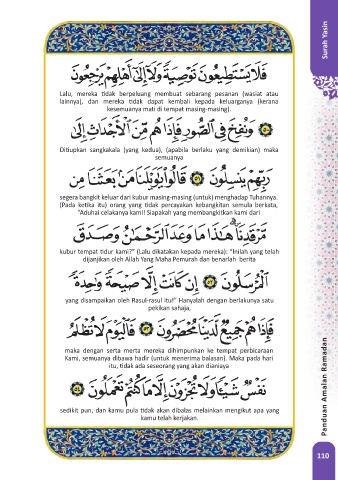 فَلَا يَسْتَطِيعُونَ تَوْصِيَةً وَلَآ إِلَىٰٓ أَهْلِهِمْ يَرْجِعُونَ
Lalu, mereka tidak berpeluang membuat sebarang pesanan (wasiat atau
lainnya), dan mereka tidak dapat kembali kepada keluarganya (kerana
kesemuanya mati di tempat masing-masing).
﴿٥٠﴾ وَنُفِخَ فِى ٱلصُّورِ فَإِذَا هُم مِّنَ ٱلْأَجْدَاثِ إِلَىٰ
Ditiupkan sangkakala (yang kedua), (apabila berlaku yang demikian) maka
semuanya
رَبِّهِمْ يَنسِلُونَ ﴿٥١﴾ قَالُوا۟ يَٰوَيْلَنَا مَنۢ بَعَثَنَا مِن
segera bangkit keluar dari kubur masing-masing (untuk) menghadap Tuhannya.
(Pada ketika itu) orang yang tidak percayakan kebangkitan semula berkata,
"Aduhai celakanya kami! Siapakah yang membangkitkan kami dari
مَّرْقَدِنَا ۜ هَٰذَا مَا وَعَدَ ٱلرَّحْمَٰنُ وَصَدَقَ
kubur tempat tidur kami?" (Lalu dikatakan kepada mereka): "Inilah yang telah
dijanjikan oleh Allah Yang Maha Pemurah dan benarlah berita
ٱلْمُرْسَلُونَ ﴿٥٢﴾ إِن كَانَتْ إِلَّا صَيْحَةً وَٰحِدَةً
yang disampaikan oleh Rasul-rasul itu!" Hanyalah dengan berlakunya satu
pekikan sahaja,
فَإِذَا هُمْ جَمِيعٌ لَّدَيْنَا مُحْضَرُونَ ﴿٥٣﴾ فَٱلْيَوْمَ لَا تُظْلَمُ
maka dengan serta merta mereka dihimpunkan ke tempat perbicaraan
Kami, semuanya dibawa hadir (untuk menerima balasan). Maka pada hari
itu, tidak ada seseorang yang akan dianiaya
نَفْسٌ شَيْـًٔا وَلَا تُجْزَوْنَ إِلَّا مَا كُنتُمْ تَعْمَلُونَ ﴿٥٤﴾
sedikit pun, dan kamu pula tidak akan dibalas melainkan mengikut apa yang
kamu telah kerjakan.
Surah Yasin
Panduan Amalan Ramadan
110